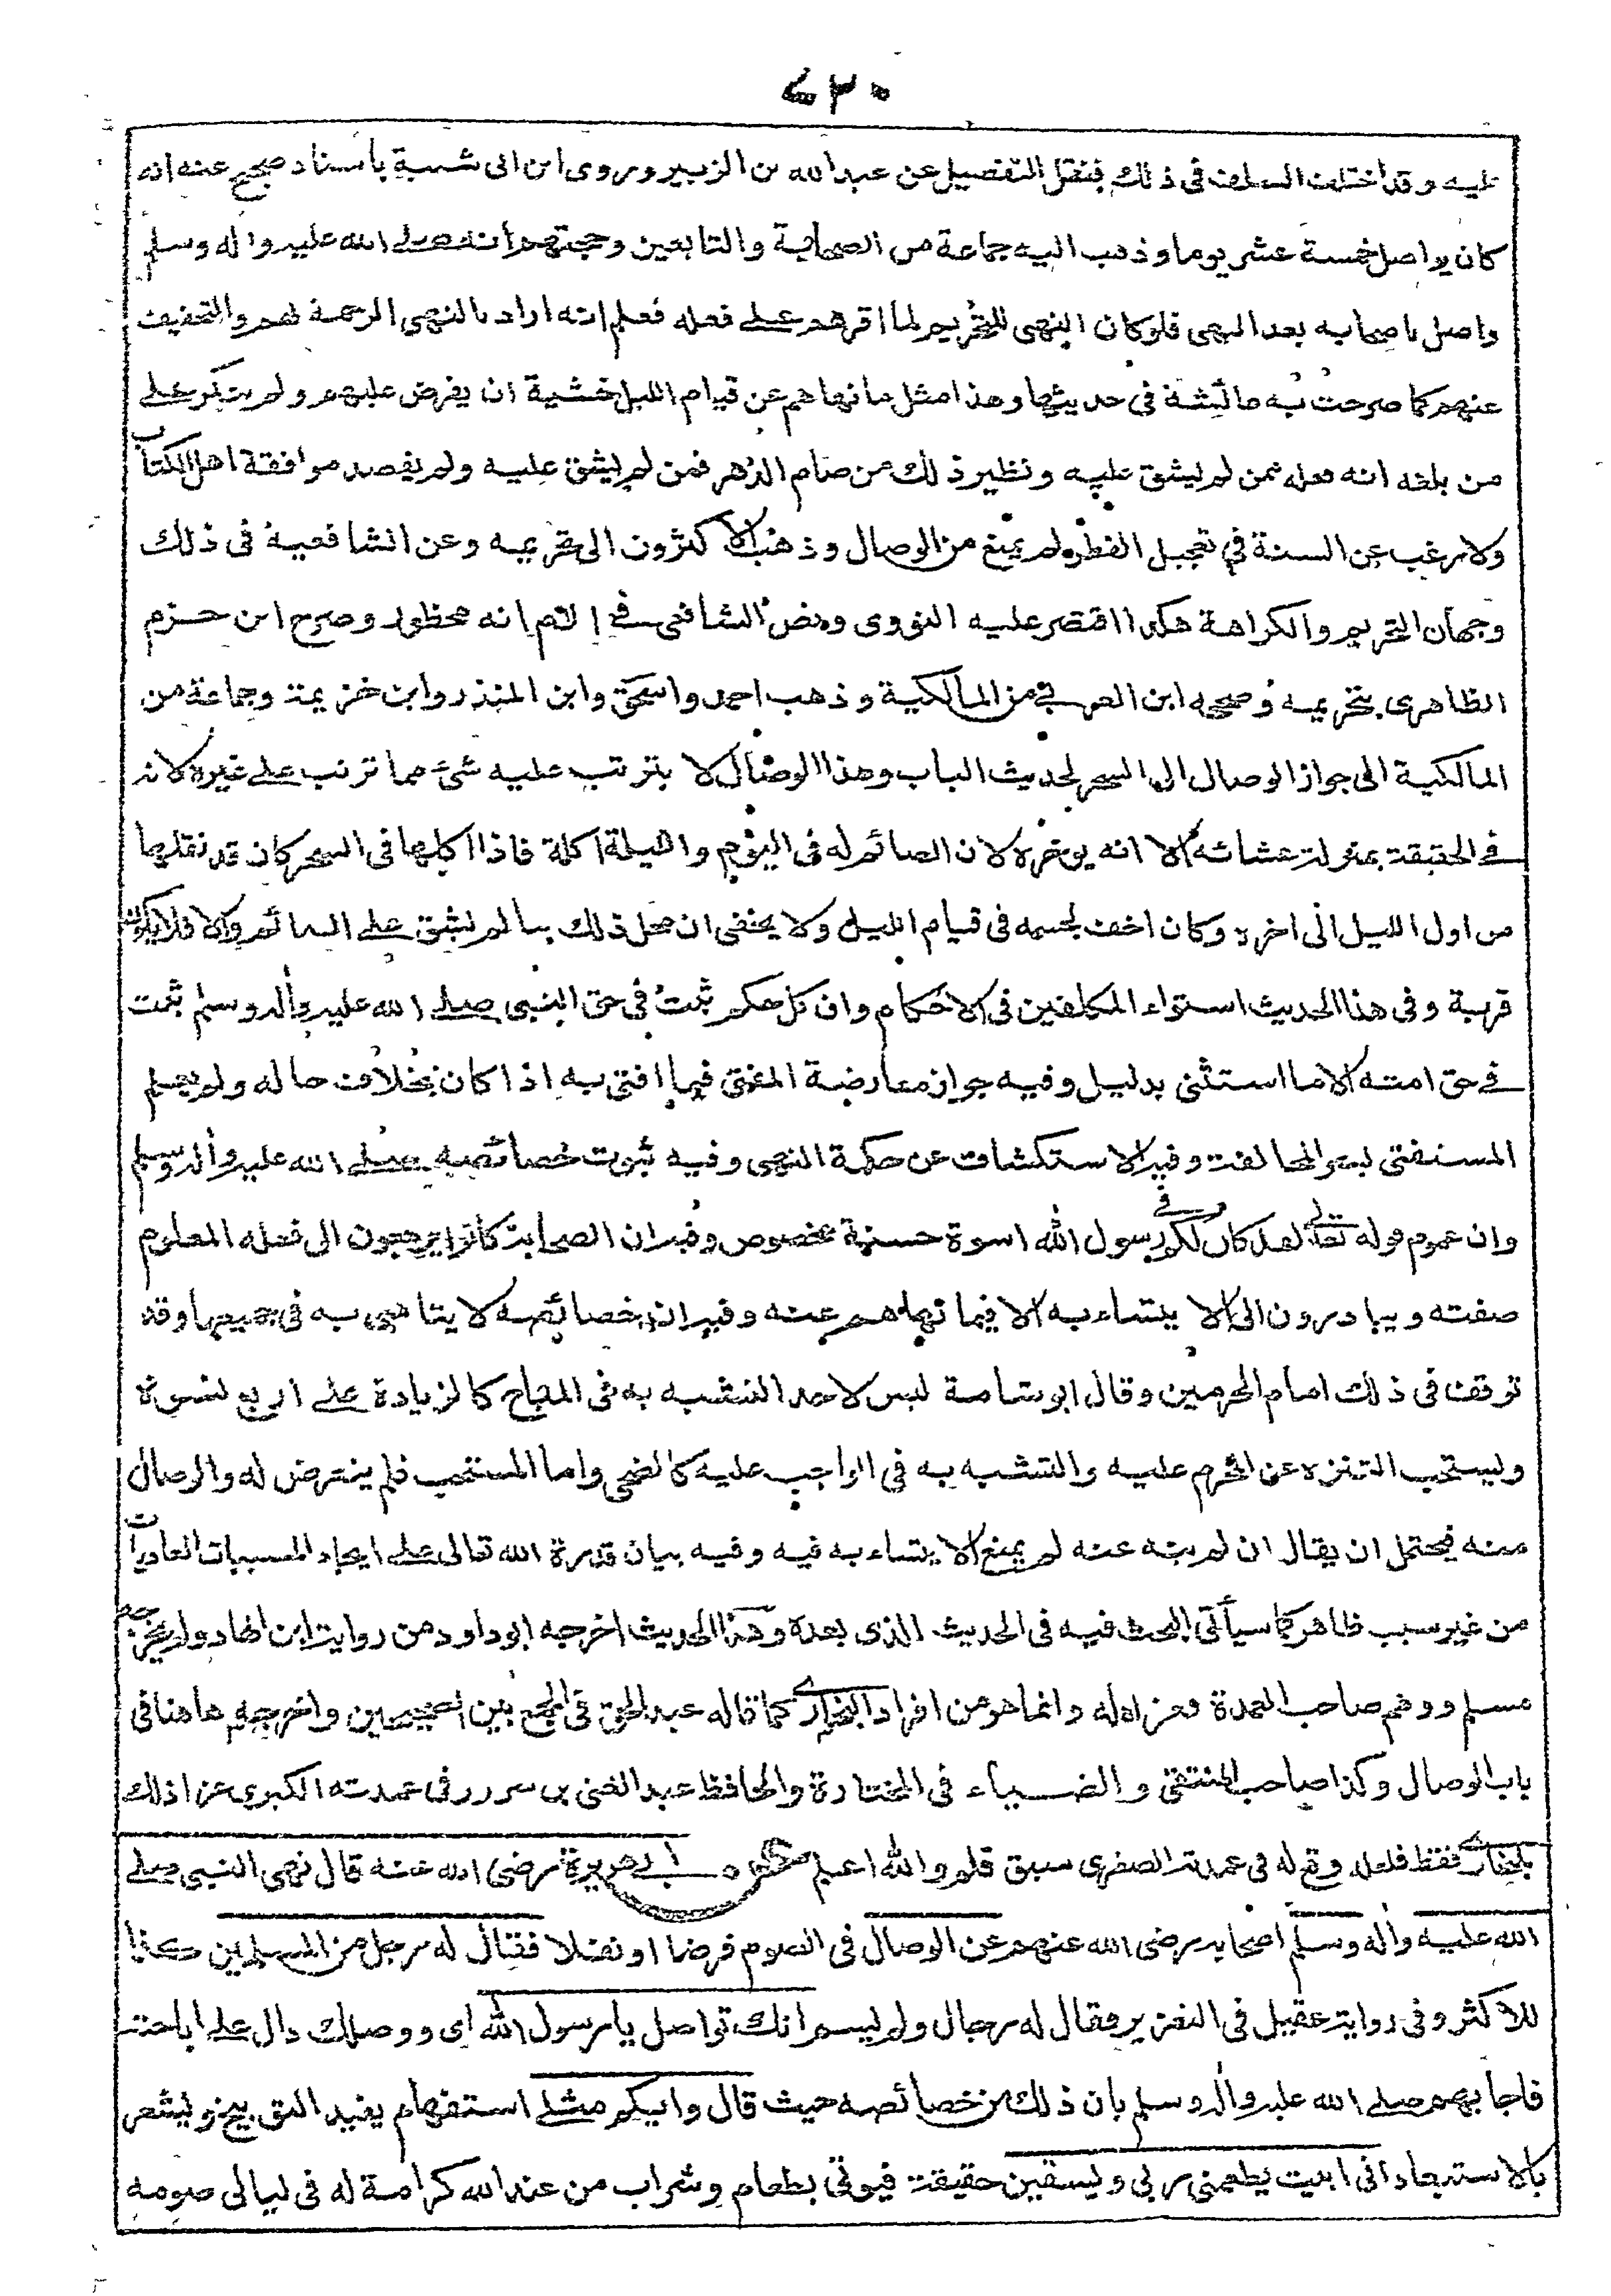 ٤٣٠
عليه وقد اختلف السلف فى ذلك فنقل التفصيل عن عبد الله بن الزبير وروى ابن ابى شيبة باسناد صحيح عنه انه
كان يواصل خمسة عشر يوما وذهب اليه جماعة من الصحابة والتابعين وحجتهم أنه صلى الله عليه واله وسلم
واصل باصحابه بعد النهى فلو كان النهى للتحريم لما اقرهم على فعله فعلم انه اراد بالنهى الرحمة لهم والتخفيف
عنهم كما صرحت به عائشة فى حديثها وهذا مثل ما نهاهم عن قيام الليل خشية ان يفرض عليهم ولم ينكر على
من بلغه انه فعله ممن لم يشق عليه ونظير ذلك من صام الدهر فمن لم يشق عليه ولم يقصد موافقة اهل الكتاب
ولا رغب عن السنة في تعجيل الفطر لم يمنع من الوصال وذهب الاكثرون الى تحريمه وعن الشافعية فى ذلك
وجهان التحريم والكراهة هكذا اقتصر عليه النووى ونص الشافعى فى الام انه محظور وصرح ابن حزم
الظاهرى بتحريمه وصححه ابن العربى من المالكية وذهب احمد واسحق وابن المنذر وابن خزيمة وجماعة من
المالكية الى جواز الوصال الى السحر لحديث الباب وهذا الوصال لا يترتب عليه شئ مما ترتب على غيره لانه
فى الحقيقة بمنزلة عشائه الا انه يوخره لان الصائم له فى اليوم والليلة اكلة فاذا اكلها فى السحر كان قد نقلها
من اول الليل الى اخره وكان اخف لجسمه فى قيام الليل ولا يخفى ان محل ذلك ما لم يشق على الصائم والا فلا يكون
قربة وفى هذا الحديث استواء المكلفين فى الاحكام وان كل حكم ثبت فى حق النبى صلى الله عليه وأله وسلم ثبت
فى حق امته الا ما استثنى بدليل وفيه جواز معارضة المفتى فيما افتى به اذا كان بخلاف حاله ولم يعلم
المستفتى بسر المخالفة وفيه الاستكشاف عن حكمة النهى وفيه ثبوت خصائصه صلى الله عليه وأله وسلم
وان عموم قوله تعالى لقد كان لكم فى رسول الله اسوة حسنة مخصوص وفيه ان الصحابة كانوا يرجعون الى فعله المعلوم
صفته ويبادرون الى الايتساء به الا فيما نهاهم عنه وفيه ان خصائصه لا يتاسى به فى جميعها وقد
توقف فى ذلك امام الحرمين وقال ابو شامة ليس لاحد التشبه به فى المباح كالزيادة على اربع نسوة
ويستحب التنزه عن المحرم عليه والتشبه به فى الواجب عليه كالضحى واما المستحب فلم يتعرض له والوصال
منه فيحتمل ان يقال ان لم ينه عنه لم يمنع الايتساء به فيه وفيه بيان قدرة الله تعالى على ايجاد المسببات العاديات
من غير سبب ظاهر كما سيأتى البحث فيه فى الحديث الذى بعده وهذا الحديث اخرجه ابوداود من رواية ابن الهاد ولم يخرجه
مسلم ووهم صاحب العمدة فعزاه له وانما هو من افراد البخارى كما قاله عبد الحق فى الجمع بين الصحيحين واخرجه هاهنا فى
باب الوصال وكذا صاحب المنتقى والضياء فى المختارة والحافظ عبد الغنى بن سرور فى عمدته الكبرى عزا ذلك
بالبخارى فقط فلعله وقع له فى عمدته الصغرى سبق قلم والله اعلم عن ابى هريرة رضى الله عنه قال نهى النبى صلى
الله عليه وأله وسلم اصحابه رضى الله عنهم عن الوصال فى الصوم فرضا او نفلا فقال له رجل من المسلمين كذا
للاكثر وفى رواية عقيل فى التعزير فقال له رجال ولم يسم انك تواصل يا رسول الله اى ووصالك دال على اباحته
فاجابهم صلى الله عليه وأله وسلم بان ذلك من خصائصه حيث قال وايكم مثلى استفهام يفيد التوبيخ ويشعر
بالاستبعاد انى ابيت يطعمنى ربى ويسقين حقيقة فيوتى بطعام وشراب من عند الله كرامة له فى ليالى صومه